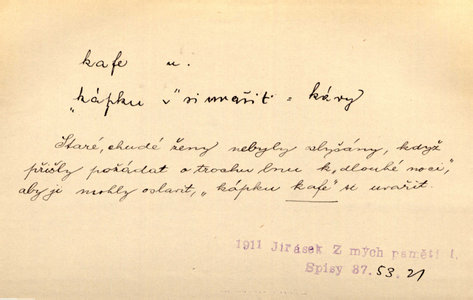 kafe n.
"kápku v" si uvařit = kávy
Staré, chudé ženy nebyly slyšány, když
přišly požádat o trochu lnu k „dlouhé noci",
aby ji mohly oslavit, „kápku kafe" si uvařit.
1911 Jirásek Z mých pamětí I.
Spisy 37. 53. 21